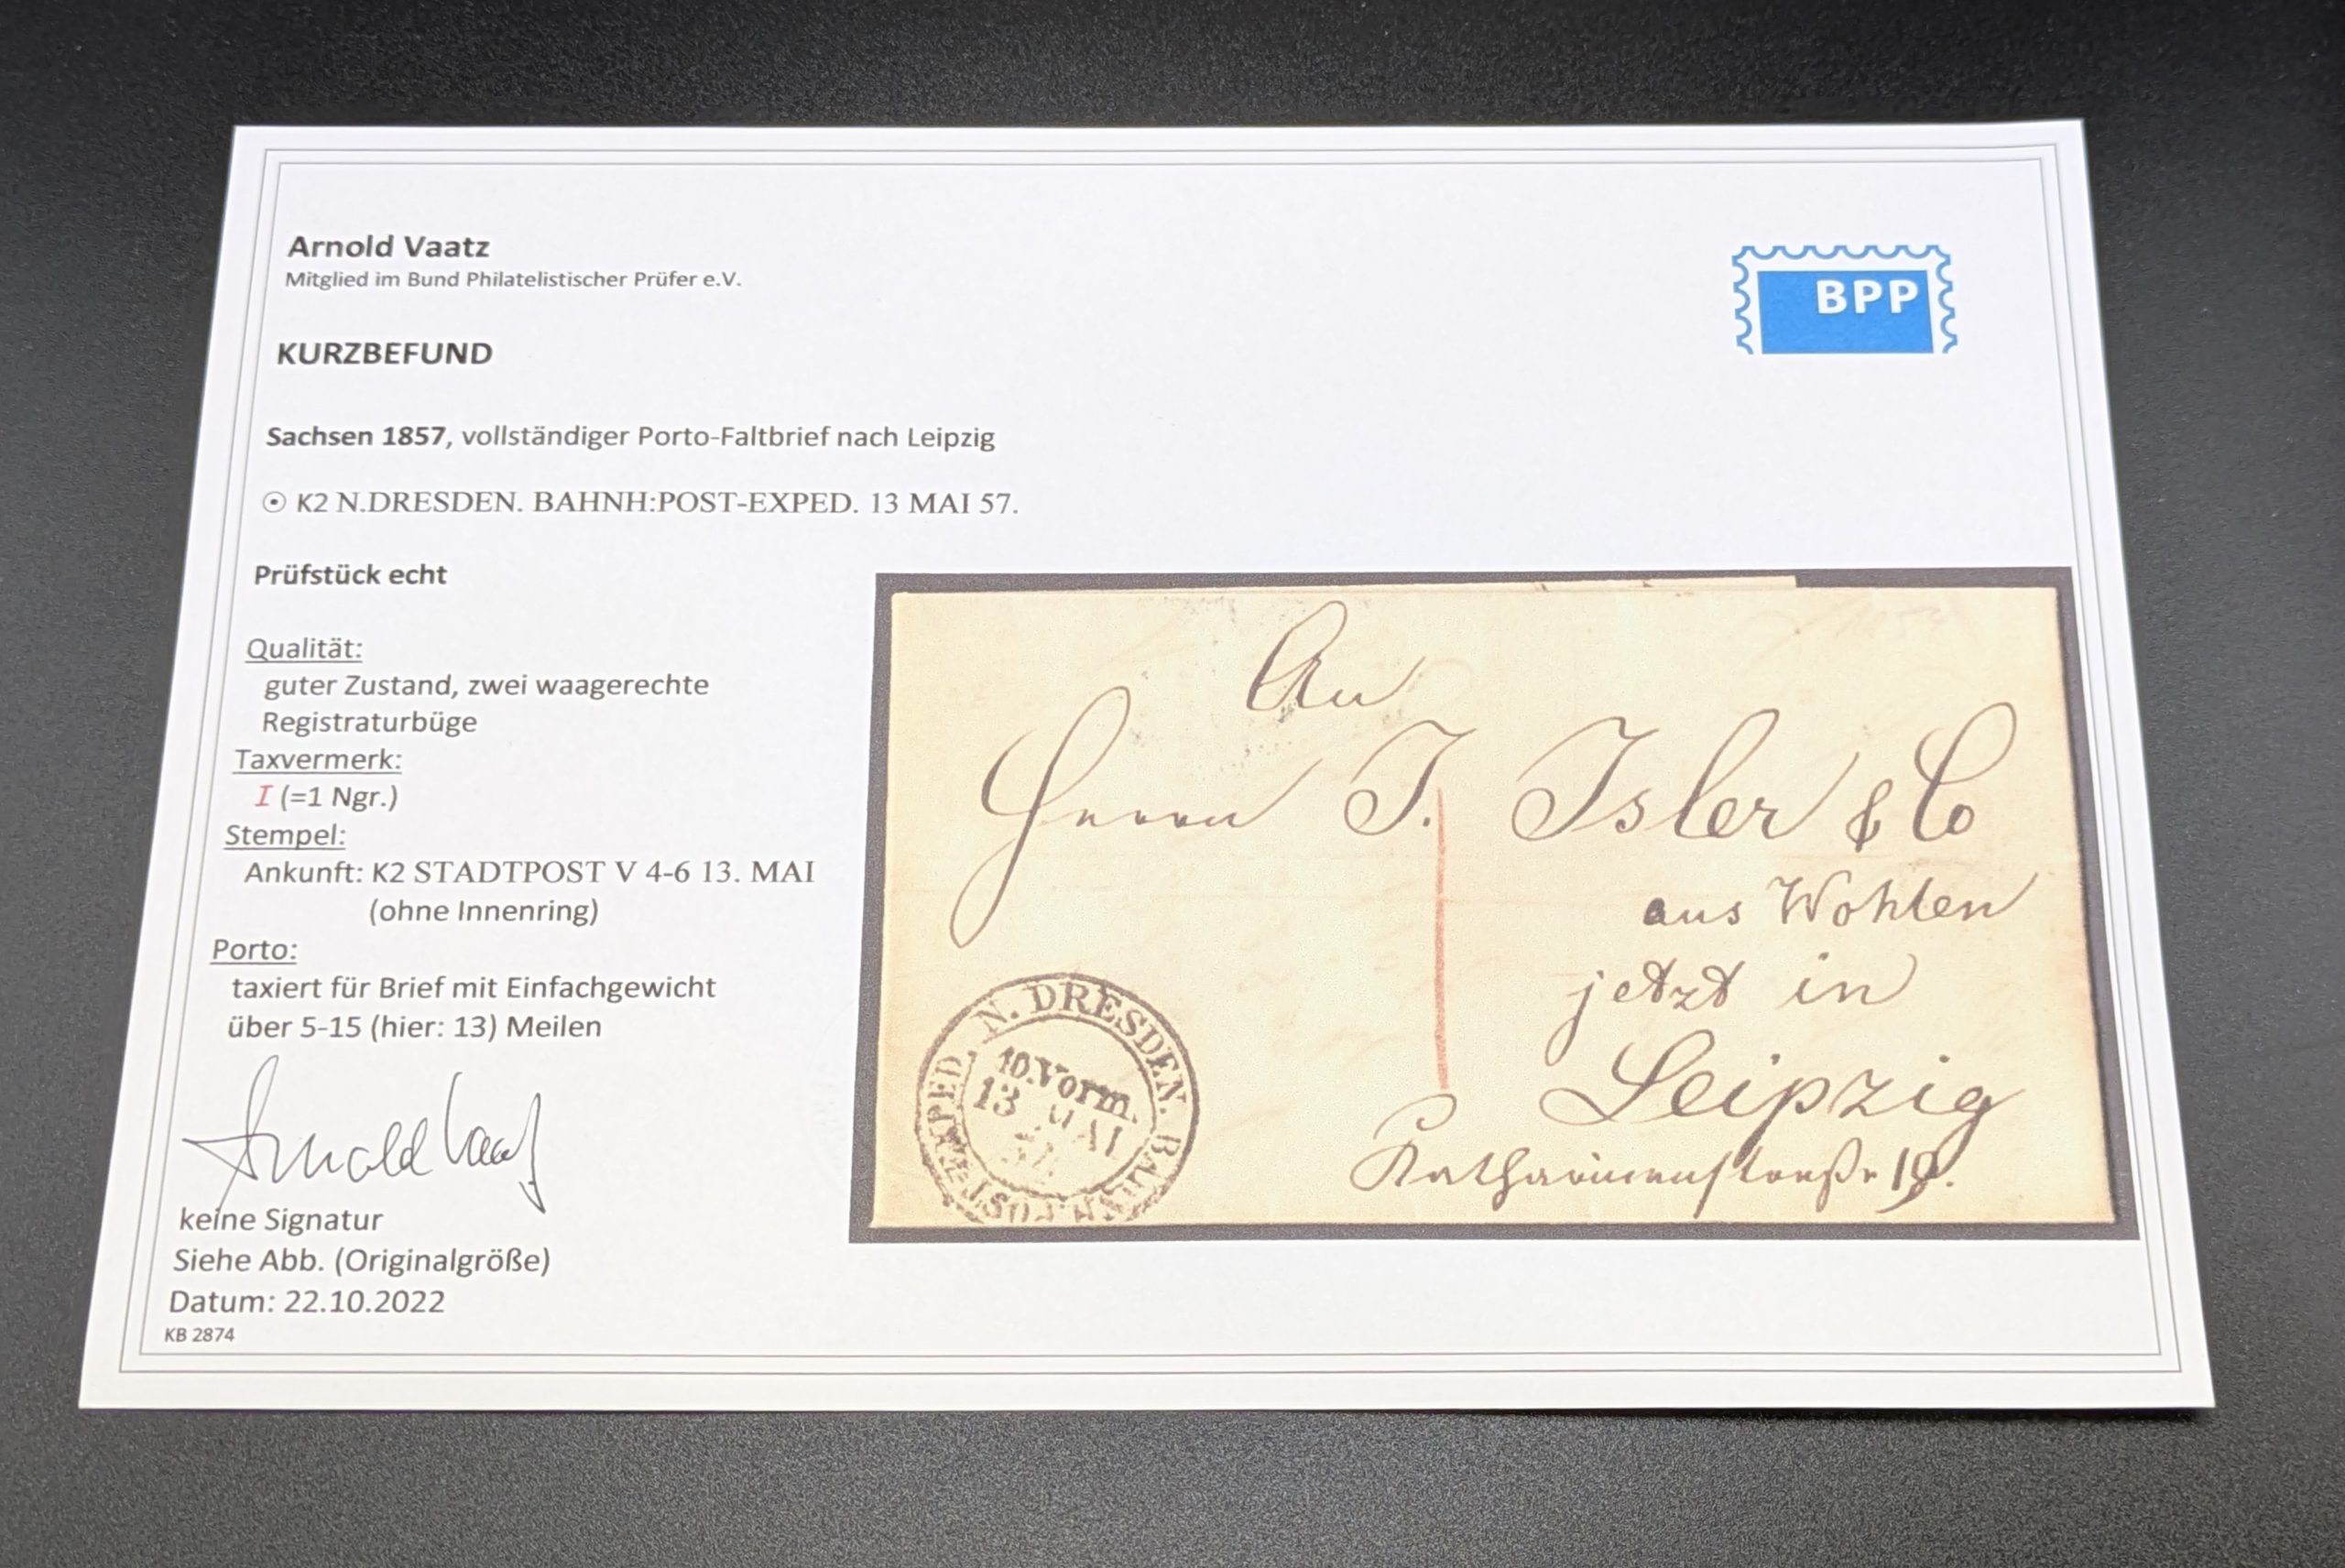 Arnold Vaatz
Mitglied im Bund Philatelistischer Prüfer e.V.
BPP
KURZBEFUND
Sachsen 1857, vollständiger Porto-Faltbrief nach Leipzig
K2 N.DRESDEN. BAHNH:POST-EXPED. 13 MAI 57.
Prüfstück echt
Qualität:
guter Zustand, zwei waagerechte
Registraturbüge
Taxvermerk:
I (=1 Ngr.)
Stempel:
Ankunft: K2 STADTPOST V 4-6 13. MAI
(ohne Innenring)
Porto:
taxiert für Brief mit Einfachgewicht
über 5-15 (hier: 13) Meilen
Arnold Vaatz
keine Signatur
Siehe Abb. (Originalgröße)
Datum: 22.10.2022
KB 2874
An
Herrn J. Isler & Co
aus Wohlen
jetzt in
Leipzig
Katharinenstraße 19.
N. DRESDEN. BAHNH: POST-EXPED.
10.Vorm.
13 MAI